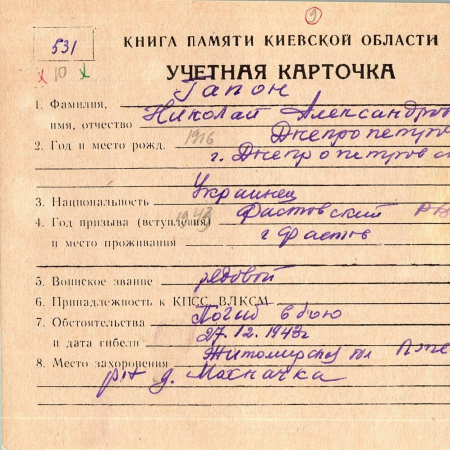 9
531
КНИГА ПАМЯТИ КИЕВСКОЙ ОБЛАСТИ
10
УЧЕТНАЯ КАРТОЧКА
Гапон
1. Фамилия,
Николай Александров
имя, отчество
Днепропетров
2. Год и место рожд. 1916
г. Днепропетровск
3. Национальность Украинец
4. Год призыва (вступления) 1943 Фастовский
и место проживания г Фастов
5. Воинское звание рядовой
6. Принадлежность к КПСС, ВЛКСМ
7. Обстоятельства Погиб в бою
и дата гибели 27.12.1943г
Житомирская
8. Место захоронения
д. Мохначка